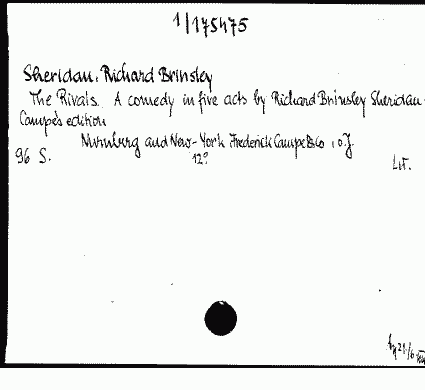 1/175475
Sheridan, Richard Brinsley
The Rivals. A comedy in five acts by Richard Brinsley Sheridan.
Campe's edition
Nürnberg and New-York Frederick Campe & Co, o.J.
96 S. 12° Lit.